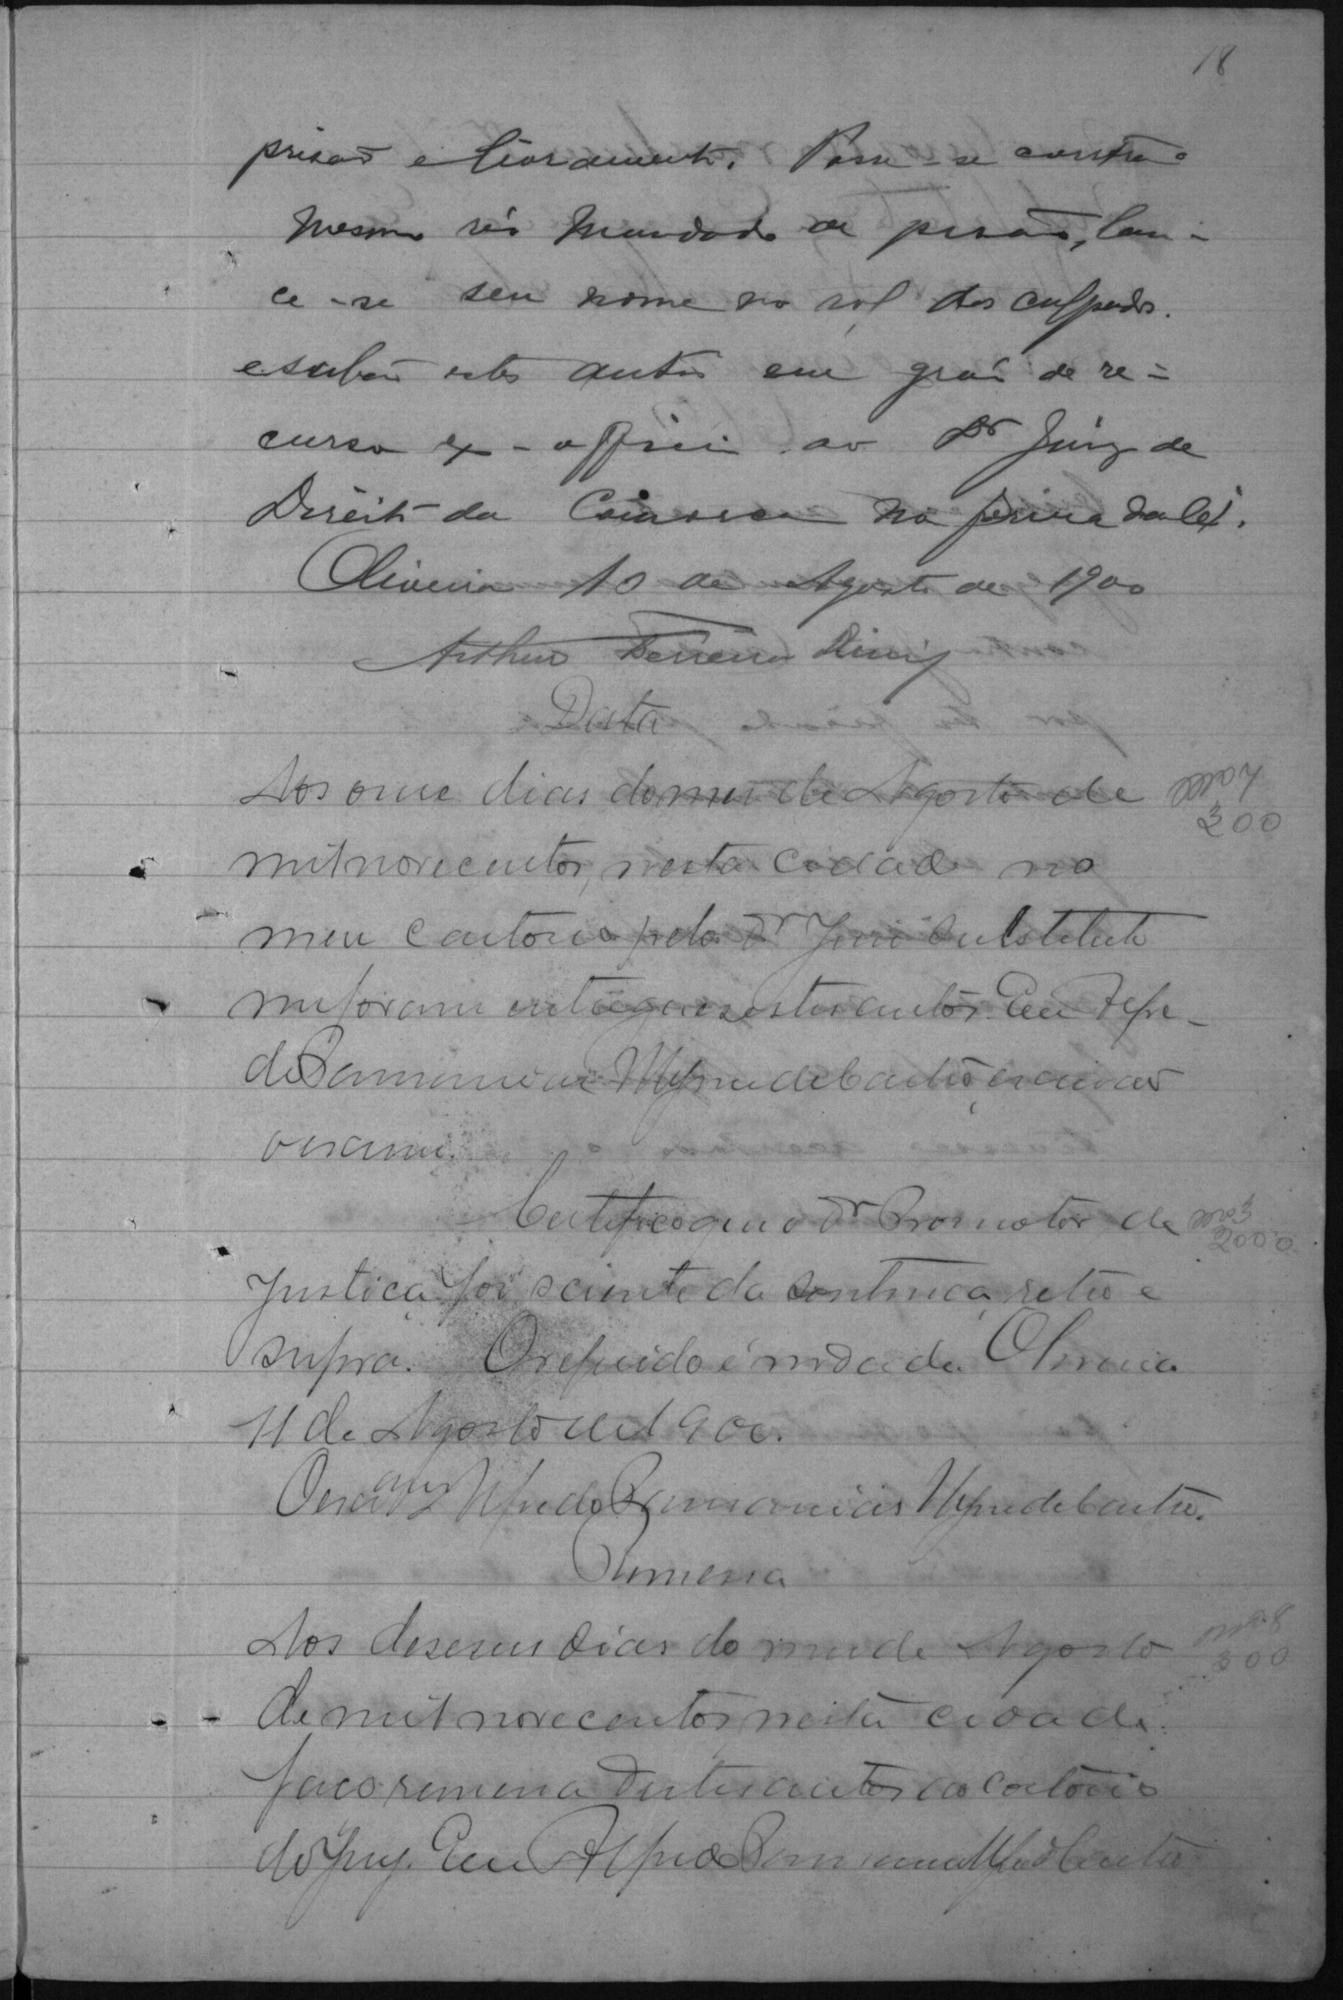 18
prisão e livramento. Passe-se contra o
mesmo réo mandado de prisão, lan-
ce-se seu nome no rol dos culpados.
e subão estes autos em gráo de re-
curso ex-officio ao Dr Juiz de
Direito da Comarca na forma da lei.
Oliveira 10 de Agosto de 1900
Arthur Ferreira Diniz
Data
Aos onze dias do mes de Agosto de
mil novecentos, nesta cidade no
meu cartorio pelo Dr Juiz Substituto
me foram entregues estes autos. Eu Alfre-
do
de Castro, escrivão
o escrevi.
Certifico que o Dr Promotor de
Justiça foi sciente da sentença retro e
supra. O referido é verdade. Oliveira
11 de Agosto de 1900.
O escrivão Alfredo de Castro.
Remessa
Aos deseseis dias do mes de Agosto
de mil novecentos, nesta cidade
faço remessa destes autos ao cartorio
do Jury. Eu Alfredo
300
2000
300